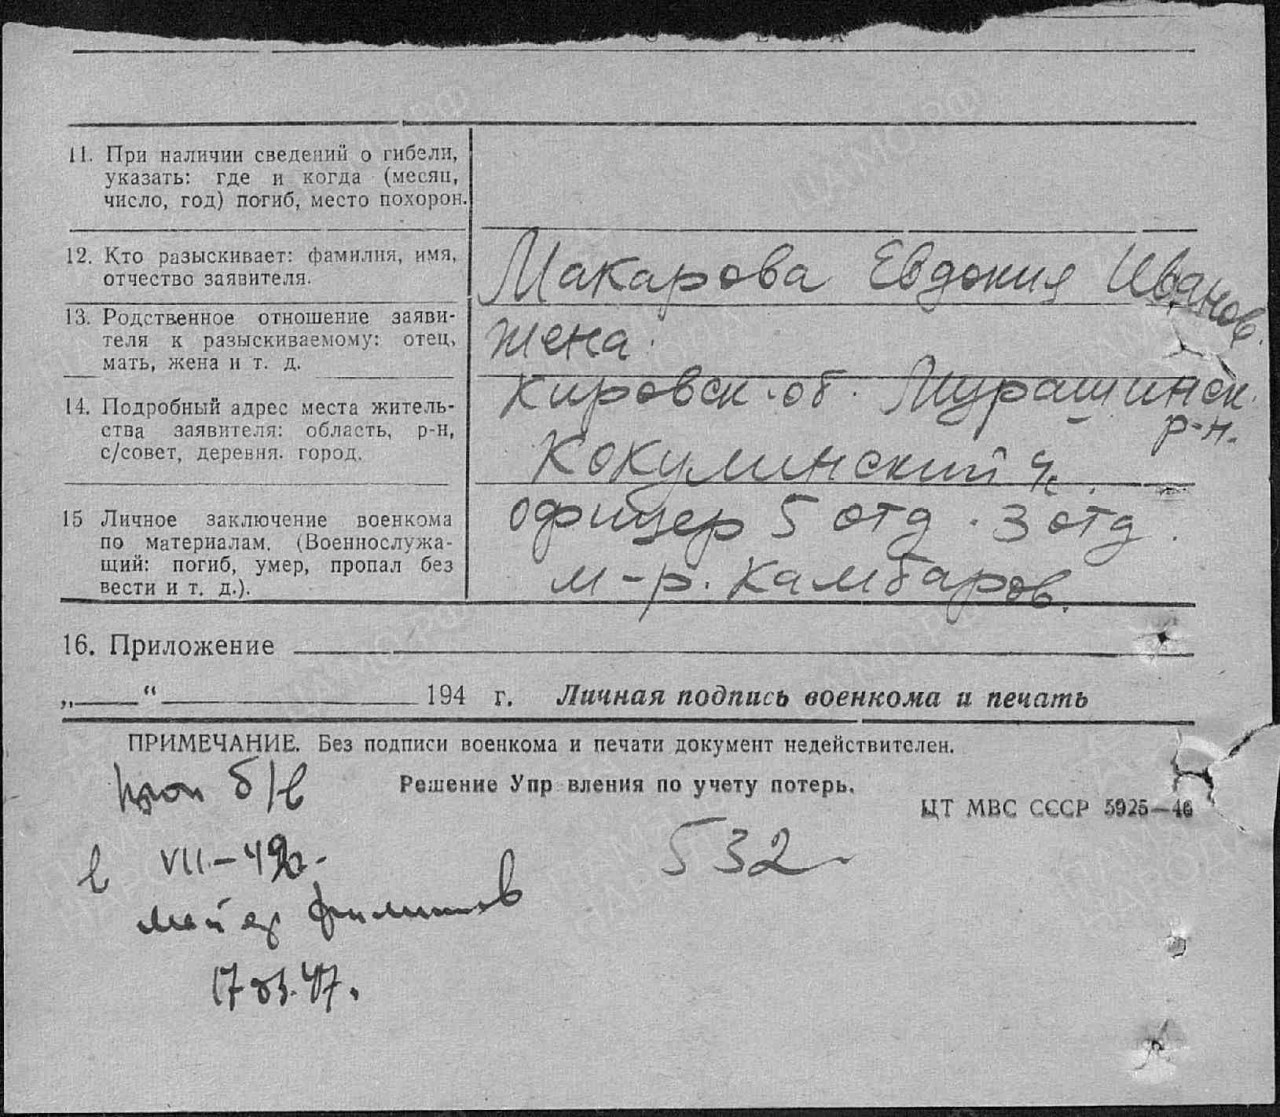 11. При наличии сведений о гибели,
указать: где и когда (месяц,
число, год) погиб, место похорон.
12. Кто разыскивает: фамилия, имя,
отчество заявителя.
Макарова Евдокия Иванов.
13. Родственное отношение заяви-
теля к разыскиваемому: отец,
мать, жена и т. д.
жена.
14. Подробный адрес места житель-
ства заявителя: область, р-н,
с/совет, деревня. город.
Кировск. об. Мурашинск.
р-н.
Кокуминский
15 Личное заключение военкома
по материалам. (Военнослужа-
щий: погиб, умер, пропал без
вести и т. д.).
офицер 5 отд. 3 отд.
м-р. Камбаров.
16. Приложение
„ “ 194 г. Личная подпись военкома и печать
ПРИМЕЧАНИЕ. Без подписи военкома и печати документ недействителен.
Решение Упр вления по учету потерь.
ЦТ МВС СССР 5925—46
проп б/в
в VII-42г.
532
майор Филиппов
17.03.47.